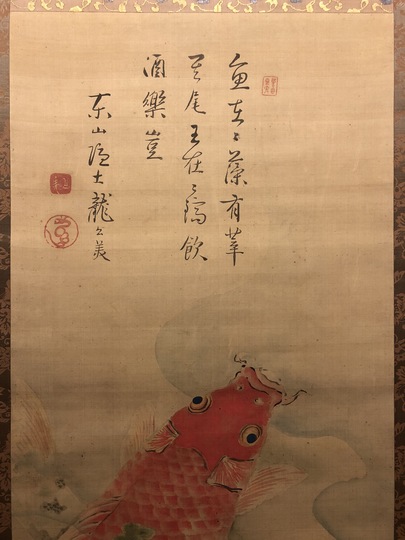 魚在々藻有莘
其尾王在々鎬飲
酒樂豈
東山隱士龍公美